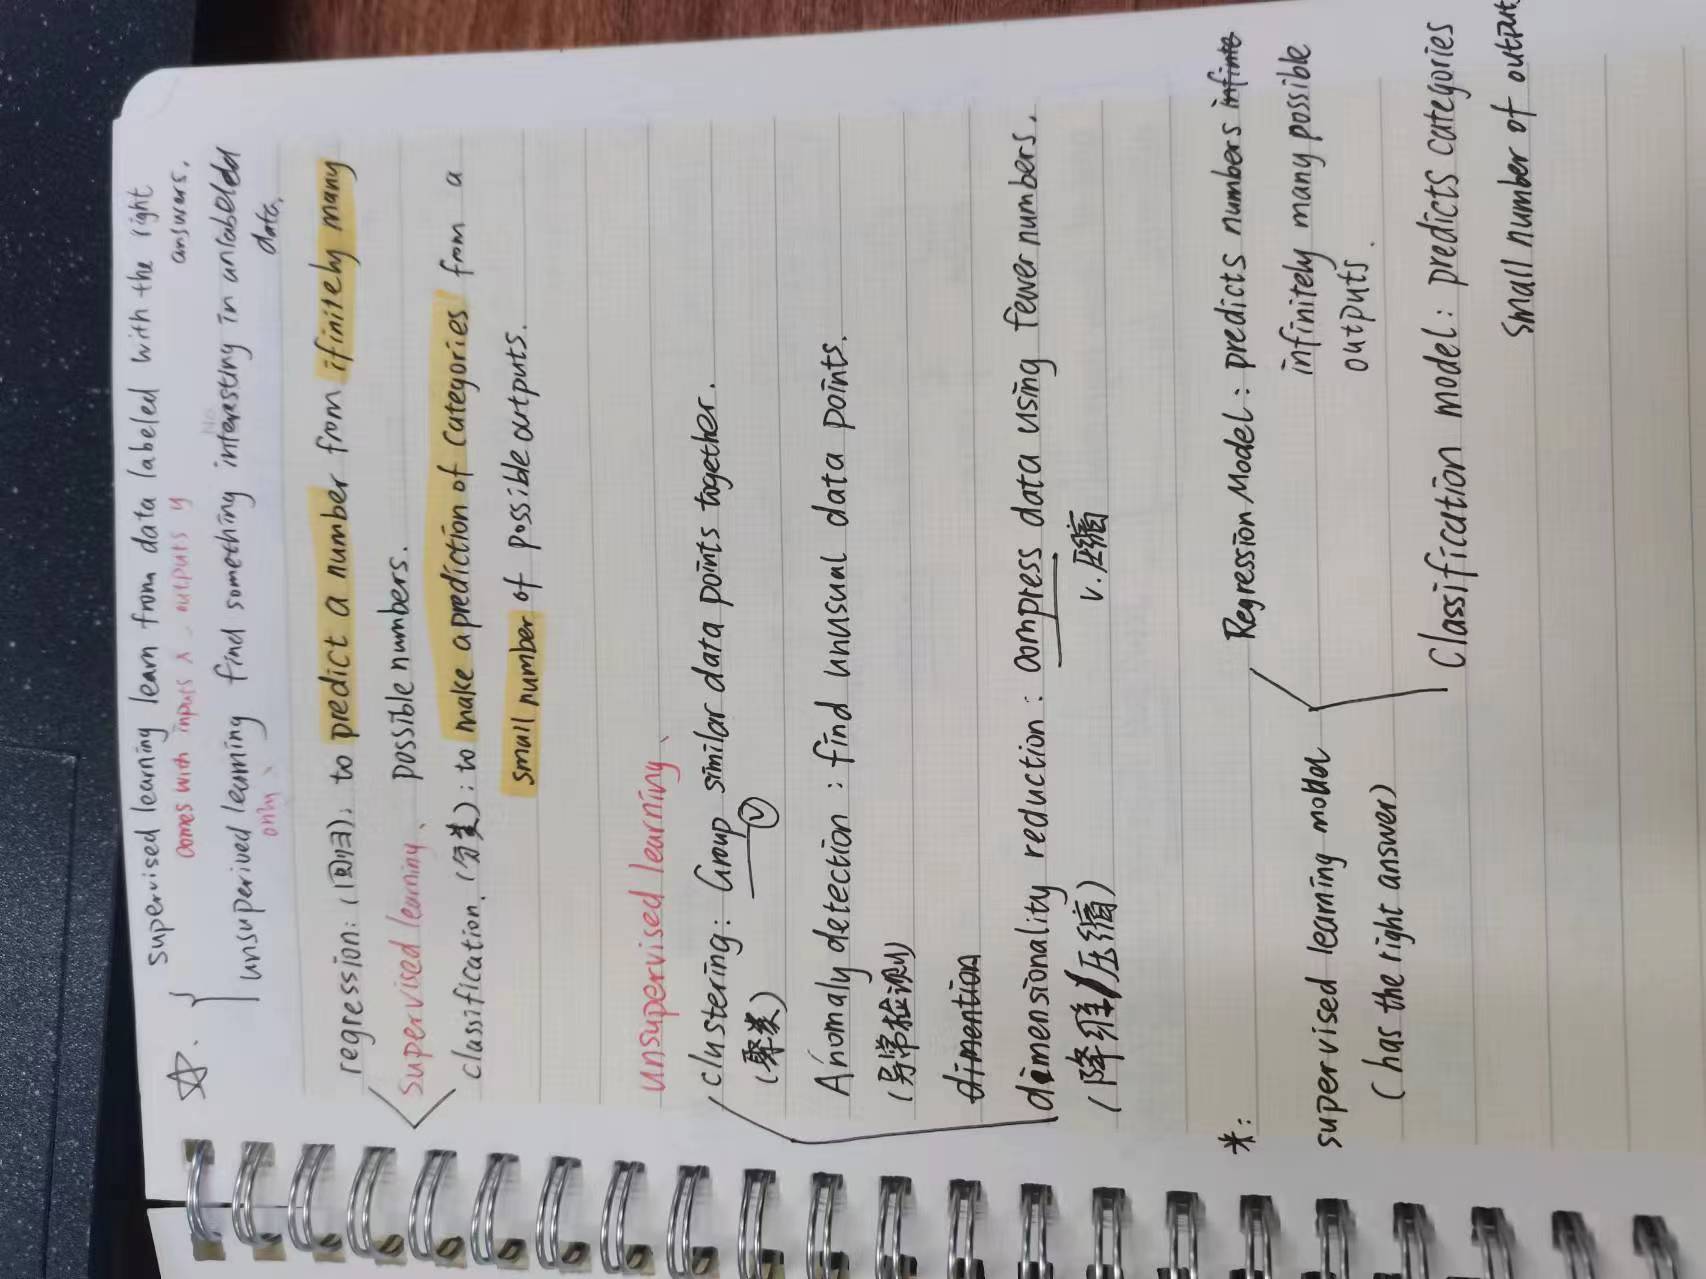 ☆. supervised learning learn from data labeled with the right
answers.
comes with inputs x - outputs y
unsuperived learning find something interesting in unlabeled
data.
only、
regression: (回归). to predict a number from ifinitely many
supervised learning、 possible numbers.
classification. (分类): to make a prediction of Categories from a
small number of possible outputs.
unsupervised learning、
clustering: Group similar data points together.
(聚类) v
Anomaly detection: find unusual data points.
(异常检测)
dimention
dimensionality reduction: compress data using fewer numbers.
(降维/压缩) v. 压缩
*: Regression Model: predicts numbers infinite
infinitely many possible
outputs.
supervised learning model
(has the right answer)
Classification model: predicts categories
small number of output